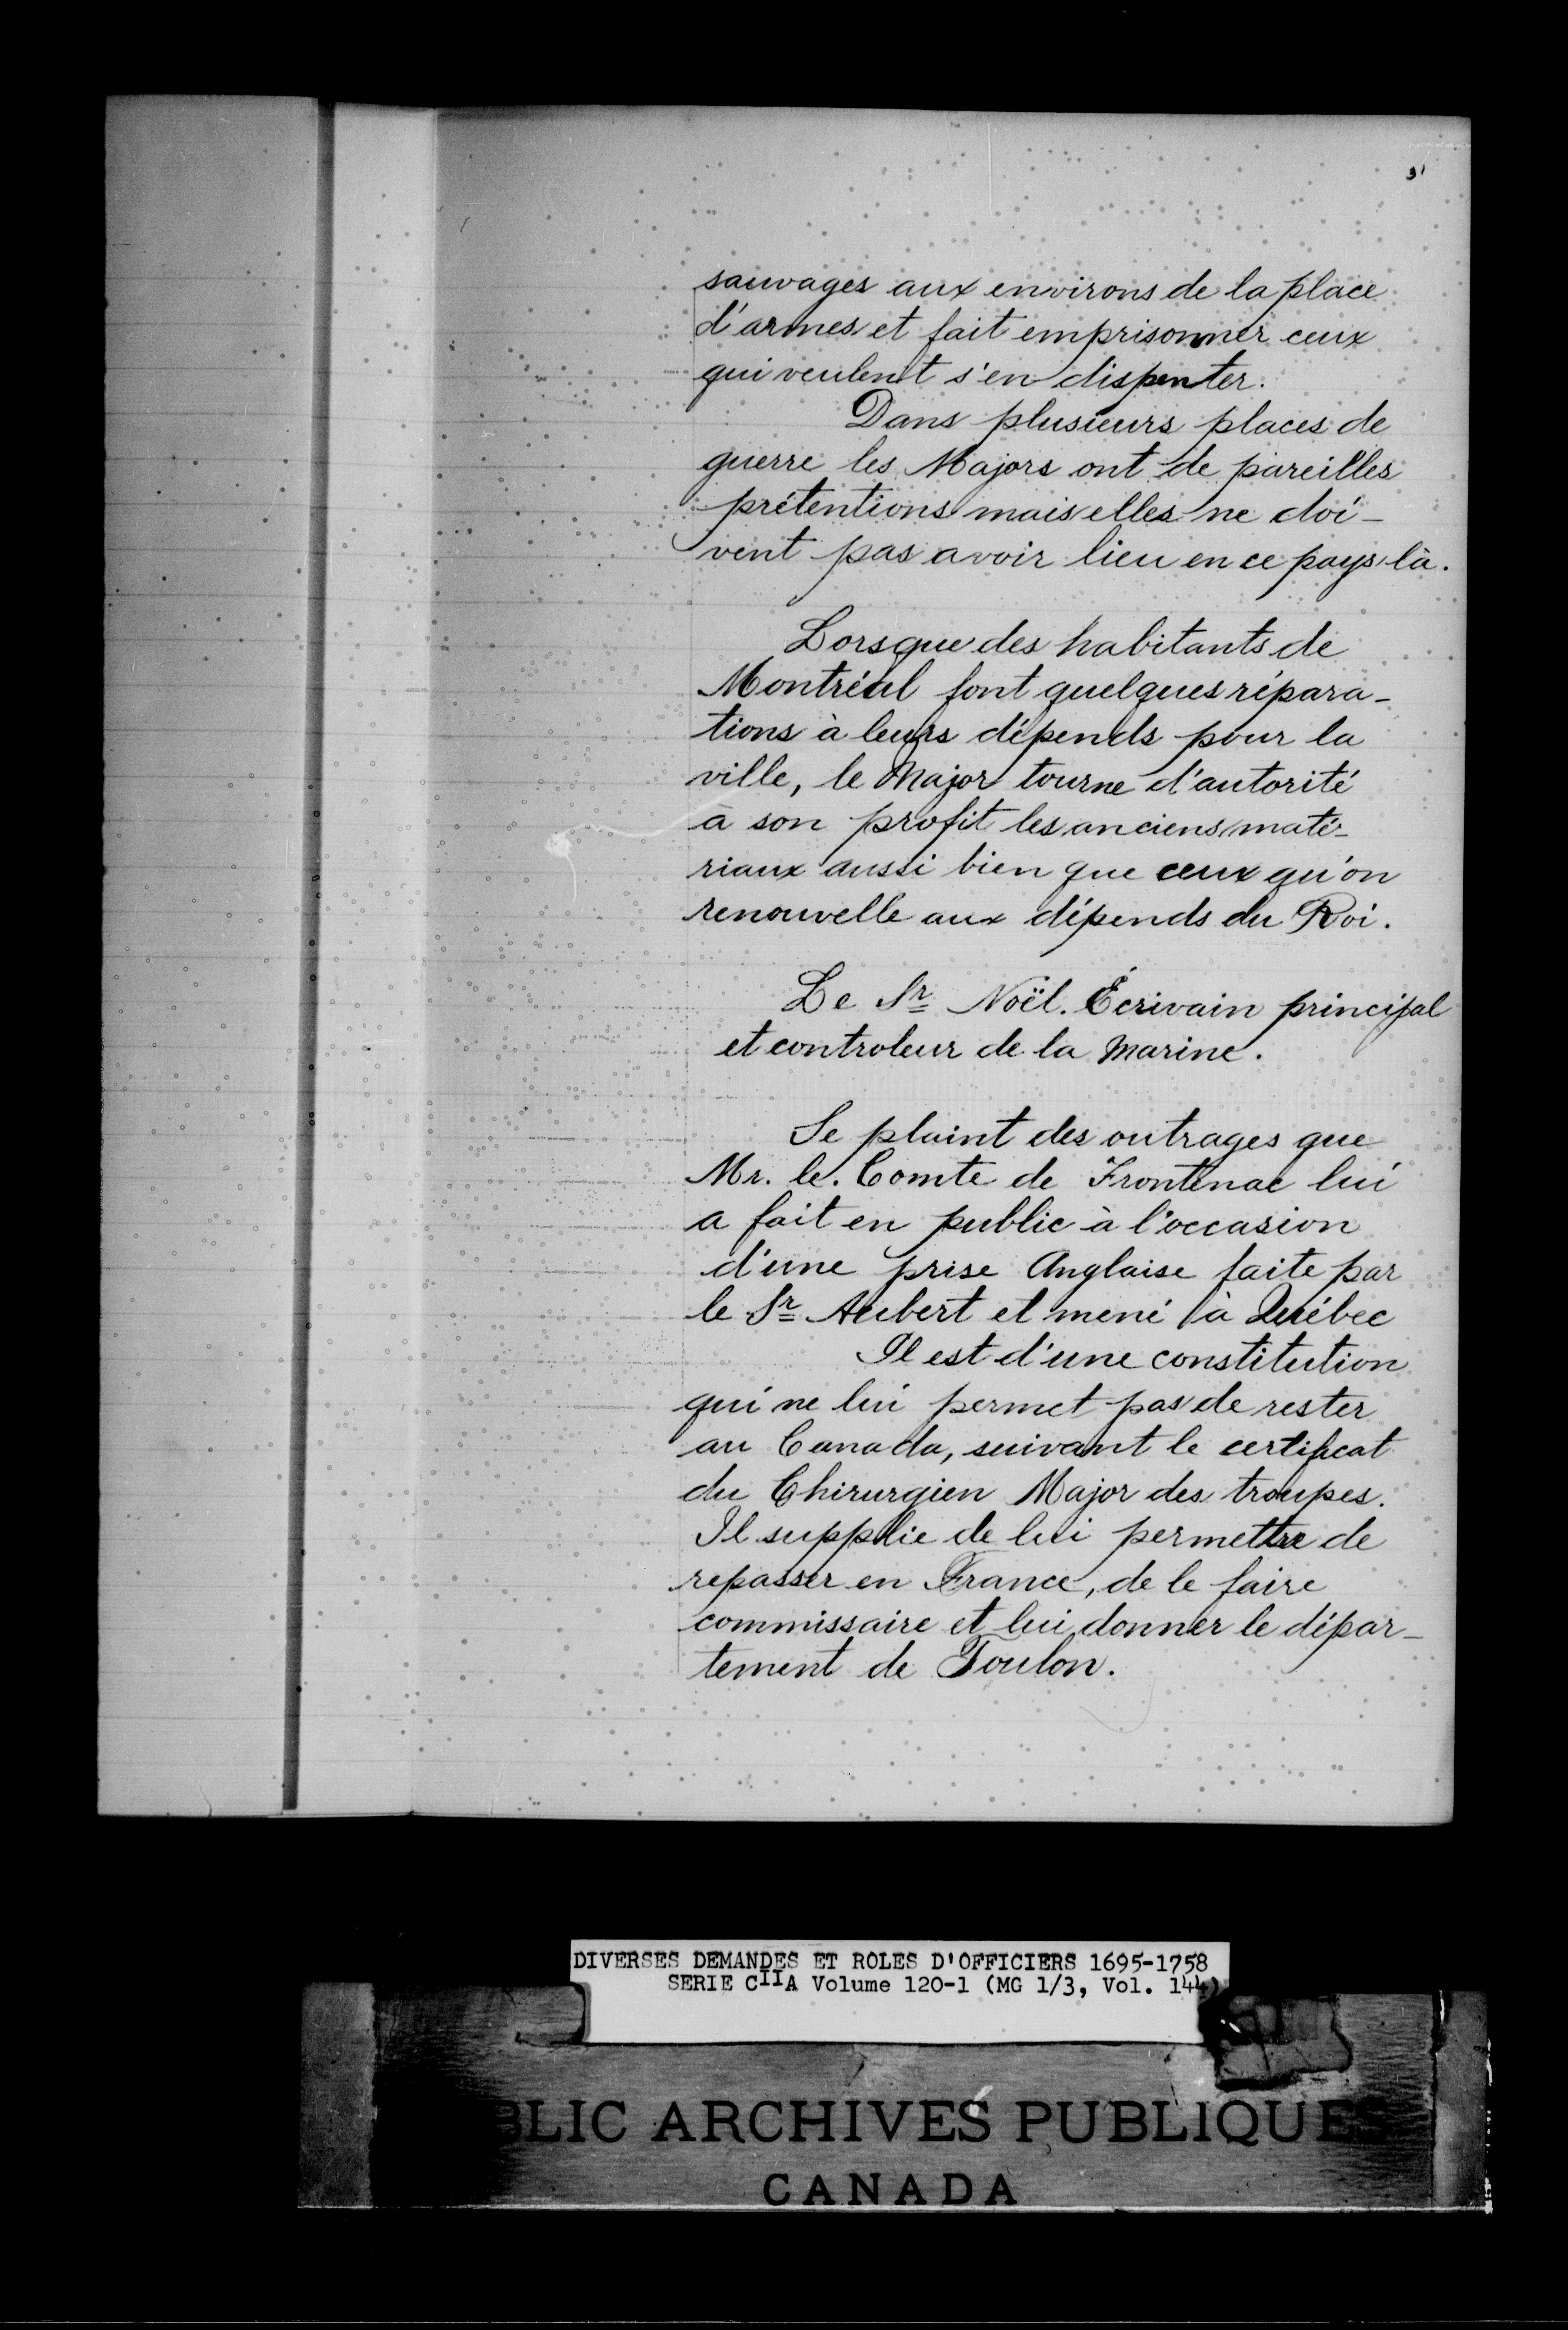 sauvages aux environs de la place
d'armes et fait emprisonner ceux
qui veulent s'en dispenter.
Dans plusieurs places de
guerre les Majors ont de pareilles
prétentions mais elles ne doi-
vent pas avoir lieu en ce pays là.
Lorsque des habitants de
Montréal font quelques répara-
tions à leurs dépends pour la
ville, le Major tourne d'autorité
à son profit les anciens maté-
riaux aussi bien que ceux qu'on
renouvelle aux dépends du Roi.
Le Sr Noël. Écrivain principal
et controleur de la Marine.
Se plaint des outrages que
Mr. le. Comte de Frontenac lui
a fait en public à l'occasion
d'une prise Anglaise faite par
le Sr Aubert et mené à Québec
Il est d'une constitution
qui ne lui permet pas de rester
au Canada, suivant le certificat
du Chirurgien Major des troupes.
Il supplie de lui permettre de
repasser en France, de le faire
commissaire et lui donner le dépar-
tement de Toulon.
DIVERSES DEMANDES ET ROLES D'OFFICIERS 1695-1758
SERIE CIIA Volume 120-1 (MG 1/3, Vol. 144)
BLIC ARCHIVES PUBLIQUES
CANADA